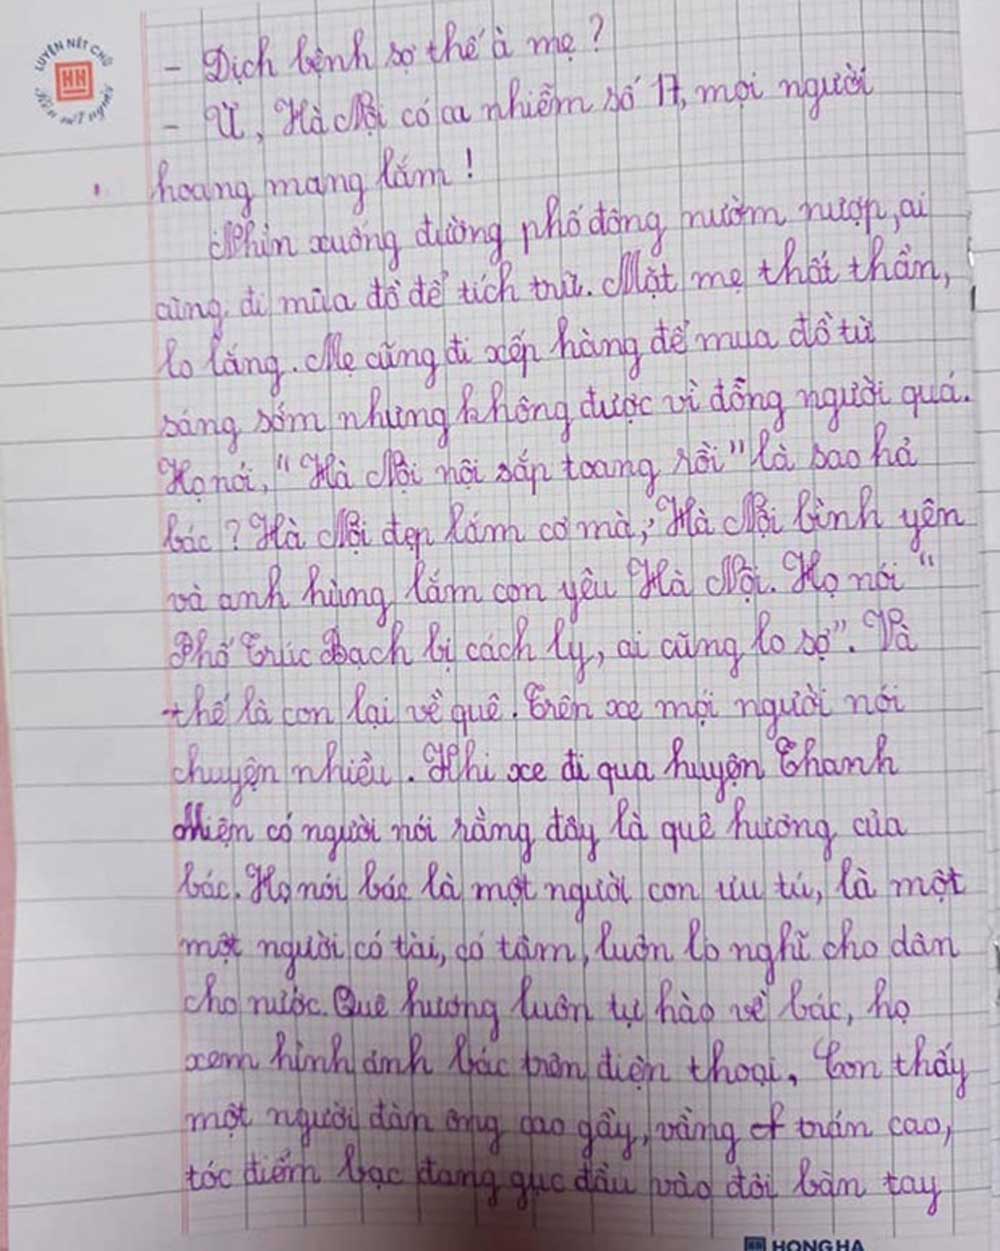 LUYỆN NÉT CHỮ
HH
Rèn nết người
- Dịch bệnh sợ thế à mẹ?
- Ừ, Hà Nội có ca nhiễm số 17, mọi người
hoang mang lắm!
Nhìn xuống đường phố đông nườm nượp, ai
cũng đi mũa đồ để tích trữ. Mặt mẹ thất thần,
lo lắng. Mẹ cũng đi xếp hàng để mua đồ từ
sáng sớm nhưng không được vì đông người quá.
Họ nói, "Hà Nội nội sắp toang rồi" là sao hả
bác? Hà Nội đẹp lắm cơ mà, Hà Nội bình yên
và anh hùng lắm con yêu Hà Nội. Họ nói "
Phố Trúc Bạch bị cách ly, ai cũng lo sợ". Và
thế là con lại về quê. Trên xe mọi người nói
chuyện nhiều. Khi xe đi qua huyện Thanh
Miện có người nói rằng đây là quê hương của
bác. Họ nói bác là một người con ưu tú, là một
một người có tài, có tâm, luôn lo nghĩ cho dân
cho nước. Quê hương luôn tự hào về bác, họ
xem hình ảnh bác trên điện thoại. Con thấy
một người đàn ông cao gầy, vầng trán cao,
tóc điểm bạc đang gục đầu vào đôi bàn tay
HH HONG HA